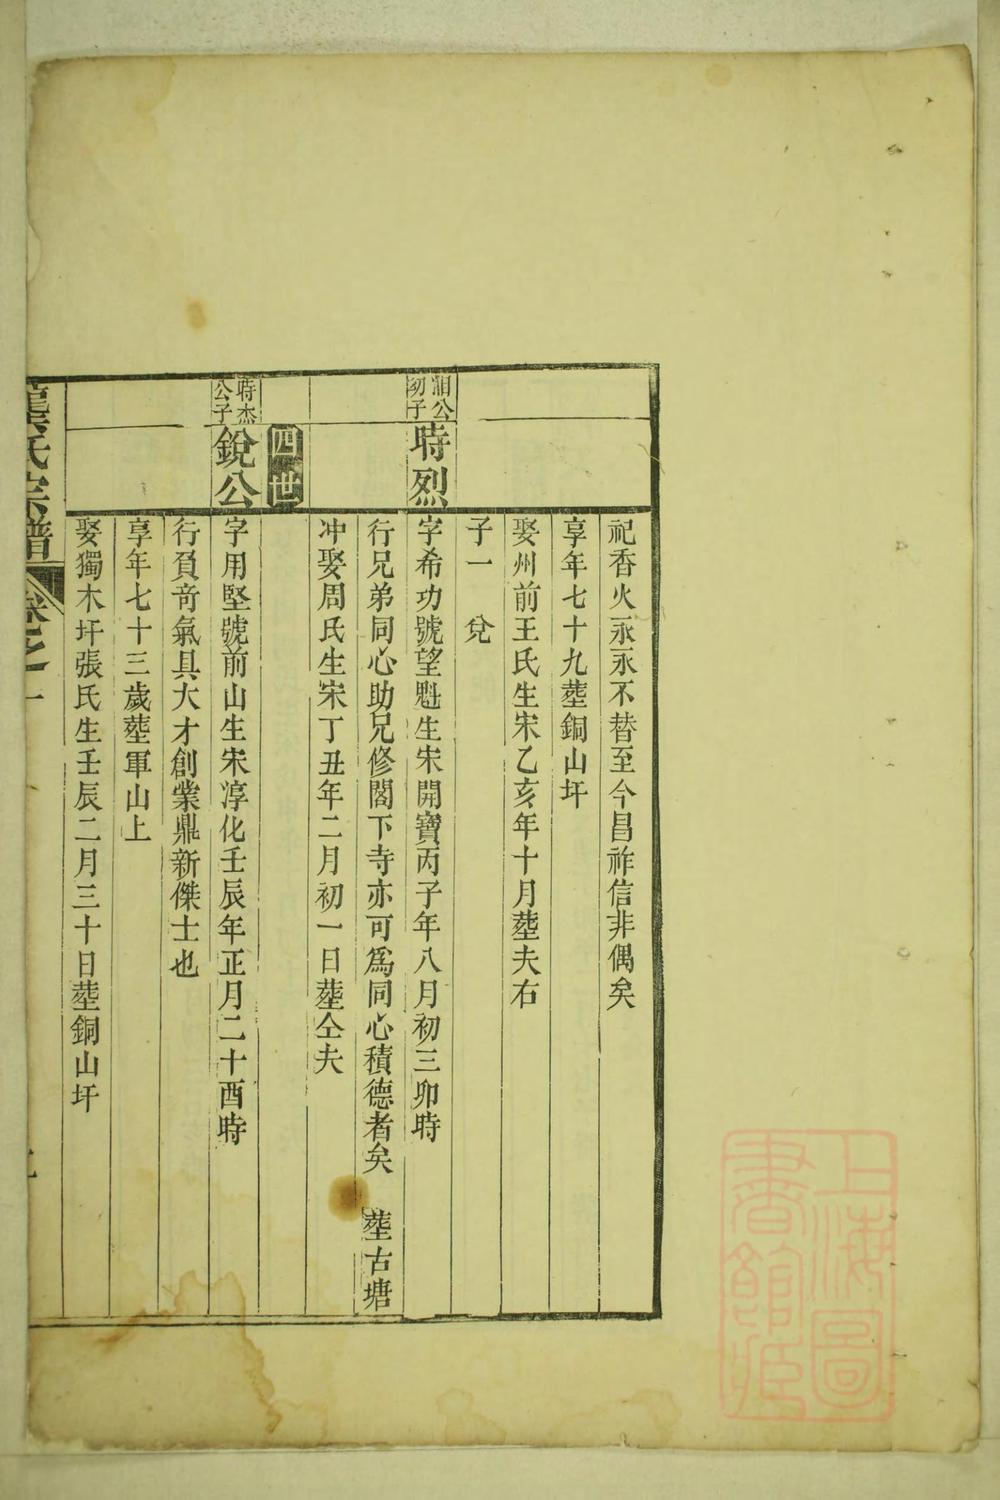 祀香火永永不替至今昌祚信非偶矣
享年七十九塟銅山圩
娶州前王氏生宋乙亥年十月塟夫右
子一　兌
湘公
幼子
時烈
字希功號望魁生宋開寶丙子年八月初三卯時
行兄弟同心助兄修閣下寺亦可爲同心積德者矣　塟古塘
冲娶周氏生宋丁丑年二月初一日塟仝夫
四世
時杰
公子
銳公
字用堅號前山生宋淳化壬辰年正月二十酉時
行負奇氣具大才創業鼎新傑士也
享年七十三歲塟軍山上
娶獨木圩張氏生壬辰二月三十日塟銅山圩
龍氏宗譜
卷之一
上海圖
書館藏